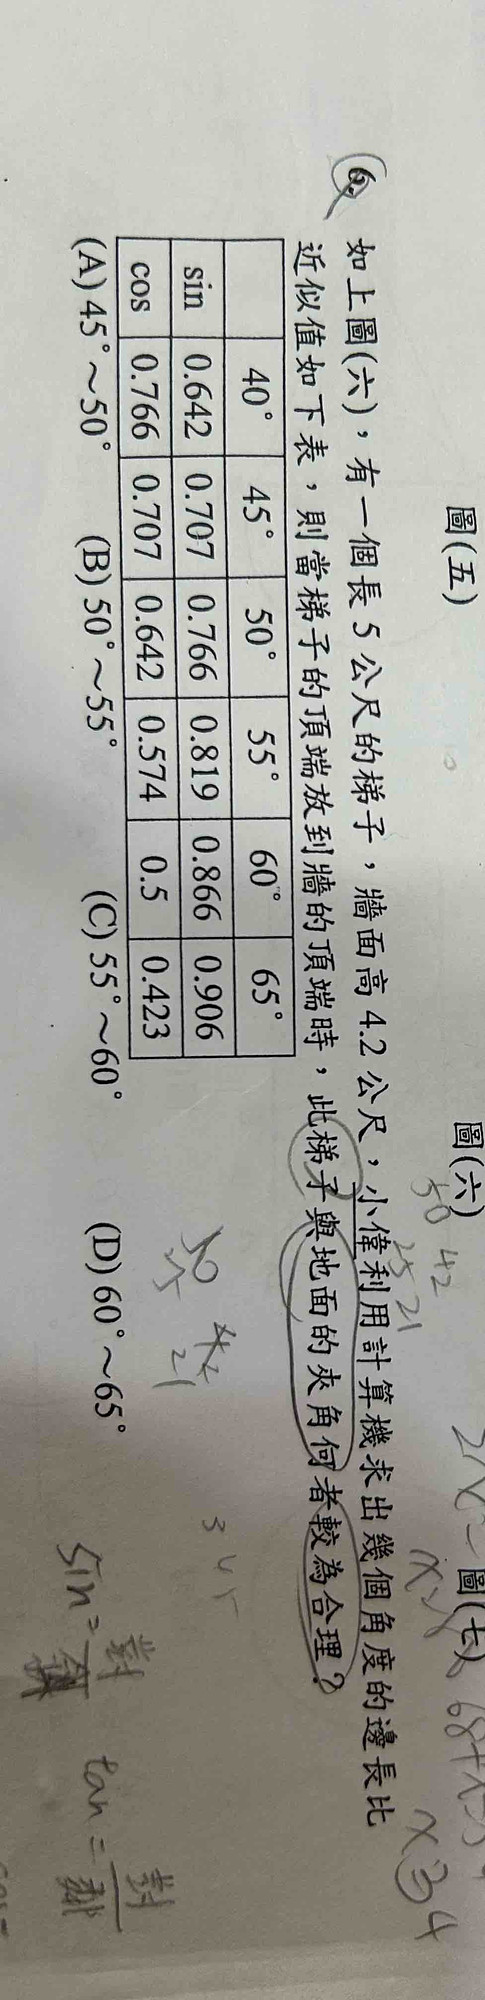 圖(五)
圖(六)
圖(七)
6.
如上圖(六)，有一個長 5 公尺的梯子，牆面高 4.2 公尺，小偉利用計算機求出幾個角度的邊長比
近似值如下表，則當梯子的頂端放到牆的頂端時，此梯子與地面的夾角何者較為合理？
40° 45° 50° 55° 60° 65°
sin 0.642 0.707 0.766 0.819 0.866 0.906
cos 0.766 0.707 0.642 0.574 0.5 0.423
(A) 45°～50° (B) 50°～55° (C) 55°～60° (D) 60°～65°
50 42
25 21
50
21
sin =
對
tan = 對
x 34